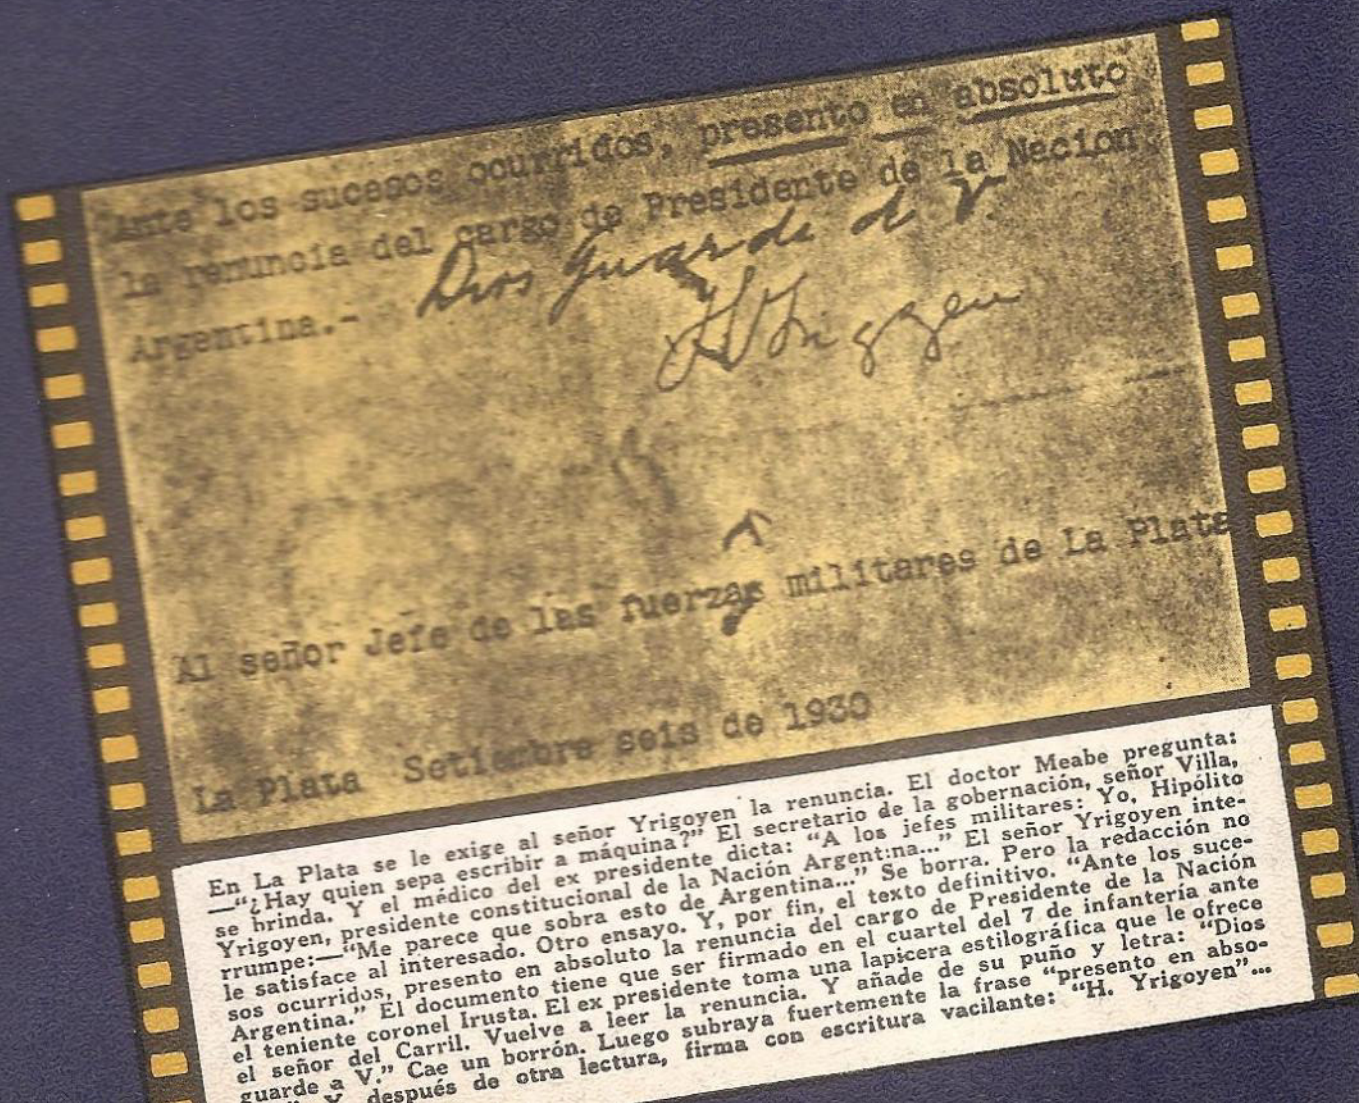 Ante los sucesos ocurridos, presento en absoluto
la renuncia del cargo de Presidente de la Nacion
Argentina.- Dios guarde a V.
H Yrigoyen
Al señor Jefe de las fuerzas militares de La Plata
La Plata Setiembre seis de 1930
En La Plata se le exige al señor Yrigoyen la renuncia. El doctor Meabe pregunta:
—“¿Hay quien sepa escribir a máquina?” El secretario de la gobernación, señor Villa,
se brinda. Y el médico del ex presidente dicta: “A los jefes militares: Yo, Hipólito
Yrigoyen, presidente constitucional de la Nación Argentina...” El señor Yrigoyen inte-
rrumpe:—“Me parece que sobra esto de Argentina...” Se borra. Pero la redacción no
le satisface al interesado. Otro ensayo. Y, por fin, el texto definitivo. “Ante los suce-
sos ocurridos, presento en absoluto la renuncia del cargo de Presidente de la Nación
Argentina.” El documento tiene que ser firmado en el cuartel del 7 de infantería ante
el teniente coronel Irusta. El ex presidente toma una lapicera estilográfica que le ofrece
el señor del Carril. Vuelve a leer la renuncia. Y añade de su puño y letra: “Dios
guarde a V.” Cae un borrón. Luego subraya fuertemente la frase “presento en abso-
Y, después de otra lectura, firma con escritura vacilante: “H. Yrigoyen”...